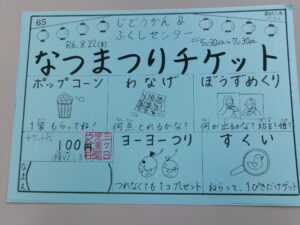 65
じどうかん &
ふくしセンター
R6.8.22(木)
5:30〜7:30
なつまつりチケット
ポップコーン
わなげ
ぼうずめくり
1客もらってね!
何点とれるかな?
何が出るかな?坊主?姫?
100円
ヨーヨーつり
すくい
つれなくても1コプレゼント
ねらって、1ぴきだけゲット
なまえ